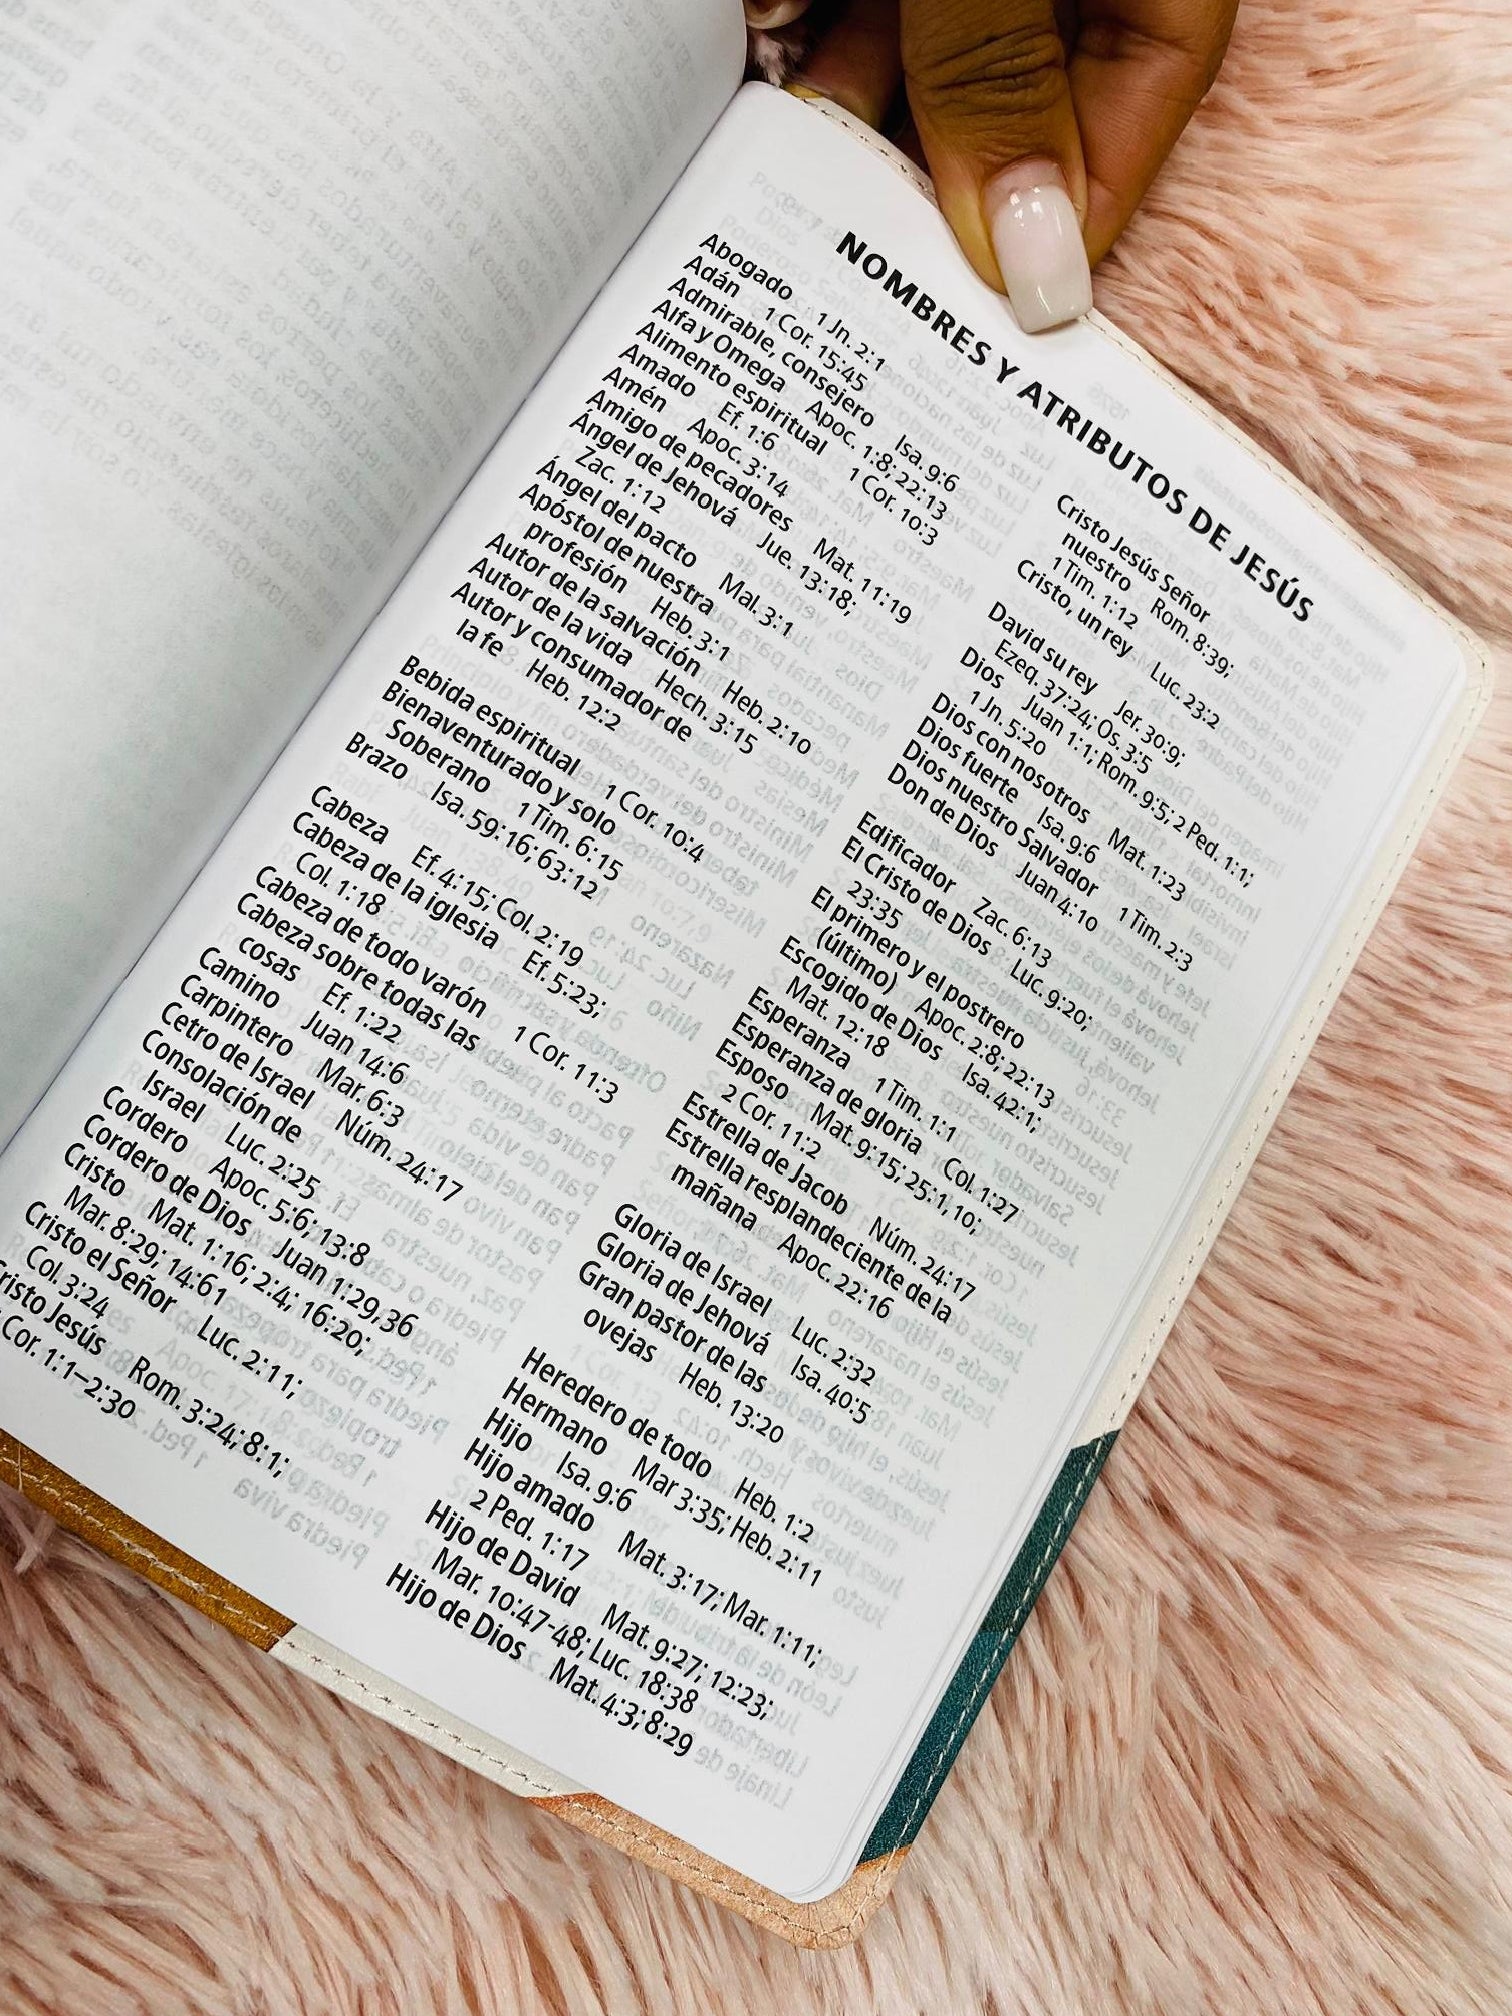 NOMBRES Y ATRIBUTOS DE JESÚS
Abogado 1 Jn. 2:1
Adán 1 Cor. 15:45
Admirable, consejero Isa. 9:6
Alfa y Omega Apoc. 1:8; 22:13
Alimento espiritual 1 Cor. 10:3
Amado Ef. 1:6
Amén Apoc. 3:14
Amigo de pecadores Mat. 11:19
Ángel de Jehová Jue. 13:18;
Zac. 1:12
Ángel del pacto Mal. 3:1
Apóstol de nuestra
profesión Heb. 3:1
Autor de la salvación Heb. 2:10
Autor de la vida Hech. 3:15
Autor y consumador de
la fe Heb. 12:2
Bebida espiritual 1 Cor. 10:4
Bienaventurado y solo
Soberano 1 Tim. 6:15
Brazo Isa. 59:16; 63:12
Cabeza Ef. 4:15; Col. 2:19
Cabeza de la iglesia Ef. 5:23;
Col. 1:18
Cabeza de todo varón 1 Cor. 11:3
Cabeza sobre todas las
cosas Ef. 1:22
Camino Juan 14:6
Carpintero Mar. 6:3
Cetro de Israel Núm. 24:17
Consolación de
Israel Luc. 2:25
Cordero Apoc. 5:6; 13:8
Cordero de Dios Juan 1:29, 36
Cristo Mat. 1:16; 2:4; 16:20;
Mar. 8:29; 14:61
Cristo el Señor Luc. 2:11;
Col. 3:24
risto Jesús Rom. 3:24; 8:1;
Cor. 1:1–2:30
Cristo Jesús Señor
nuestro Rom. 8:39;
1 Tim. 1:12
Cristo, un rey Luc. 23:2
David su rey Jer. 30:9;
Ezeq. 37:24; Os. 3:5
Dios Juan 1:1; Rom. 9:5; 2 Ped. 1:1;
1 Jn. 5:20
Dios con nosotros Mat. 1:23
Dios fuerte Isa. 9:6
Dios nuestro Salvador 1 Tim. 2:3
Don de Dios Juan 4:10
Edificador Zac. 6:13
El Cristo de Dios Luc. 9:20;
23:35
El primero y el postrero
(último) Apoc. 2:8; 22:13
Escogido de Dios Isa. 42:1;
Mat. 12:18
Esperanza 1 Tim. 1:1
Esperanza de gloria Col. 1:27
Esposo Mat. 9:15; 25:1, 10;
2 Cor. 11:2
Estrella de Jacob Núm. 24:17
Estrella resplandeciente de la
mañana Apoc. 22:16
Gloria de Israel Luc. 2:32
Gloria de Jehová Isa. 40:5
Gran pastor de las
ovejas Heb. 13:20
Heredero de todo Heb. 1:2
Hermano Mar 3:35; Heb. 2:11
Hijo Isa. 9:6
Hijo amado Mat. 3:17; Mar. 1:11;
2 Ped. 1:17
Hijo de David Mat. 9:27; 12:23;
Mar. 10:47-48; Luc. 18:38
Hijo de Dios Mat. 4:3; 8:29